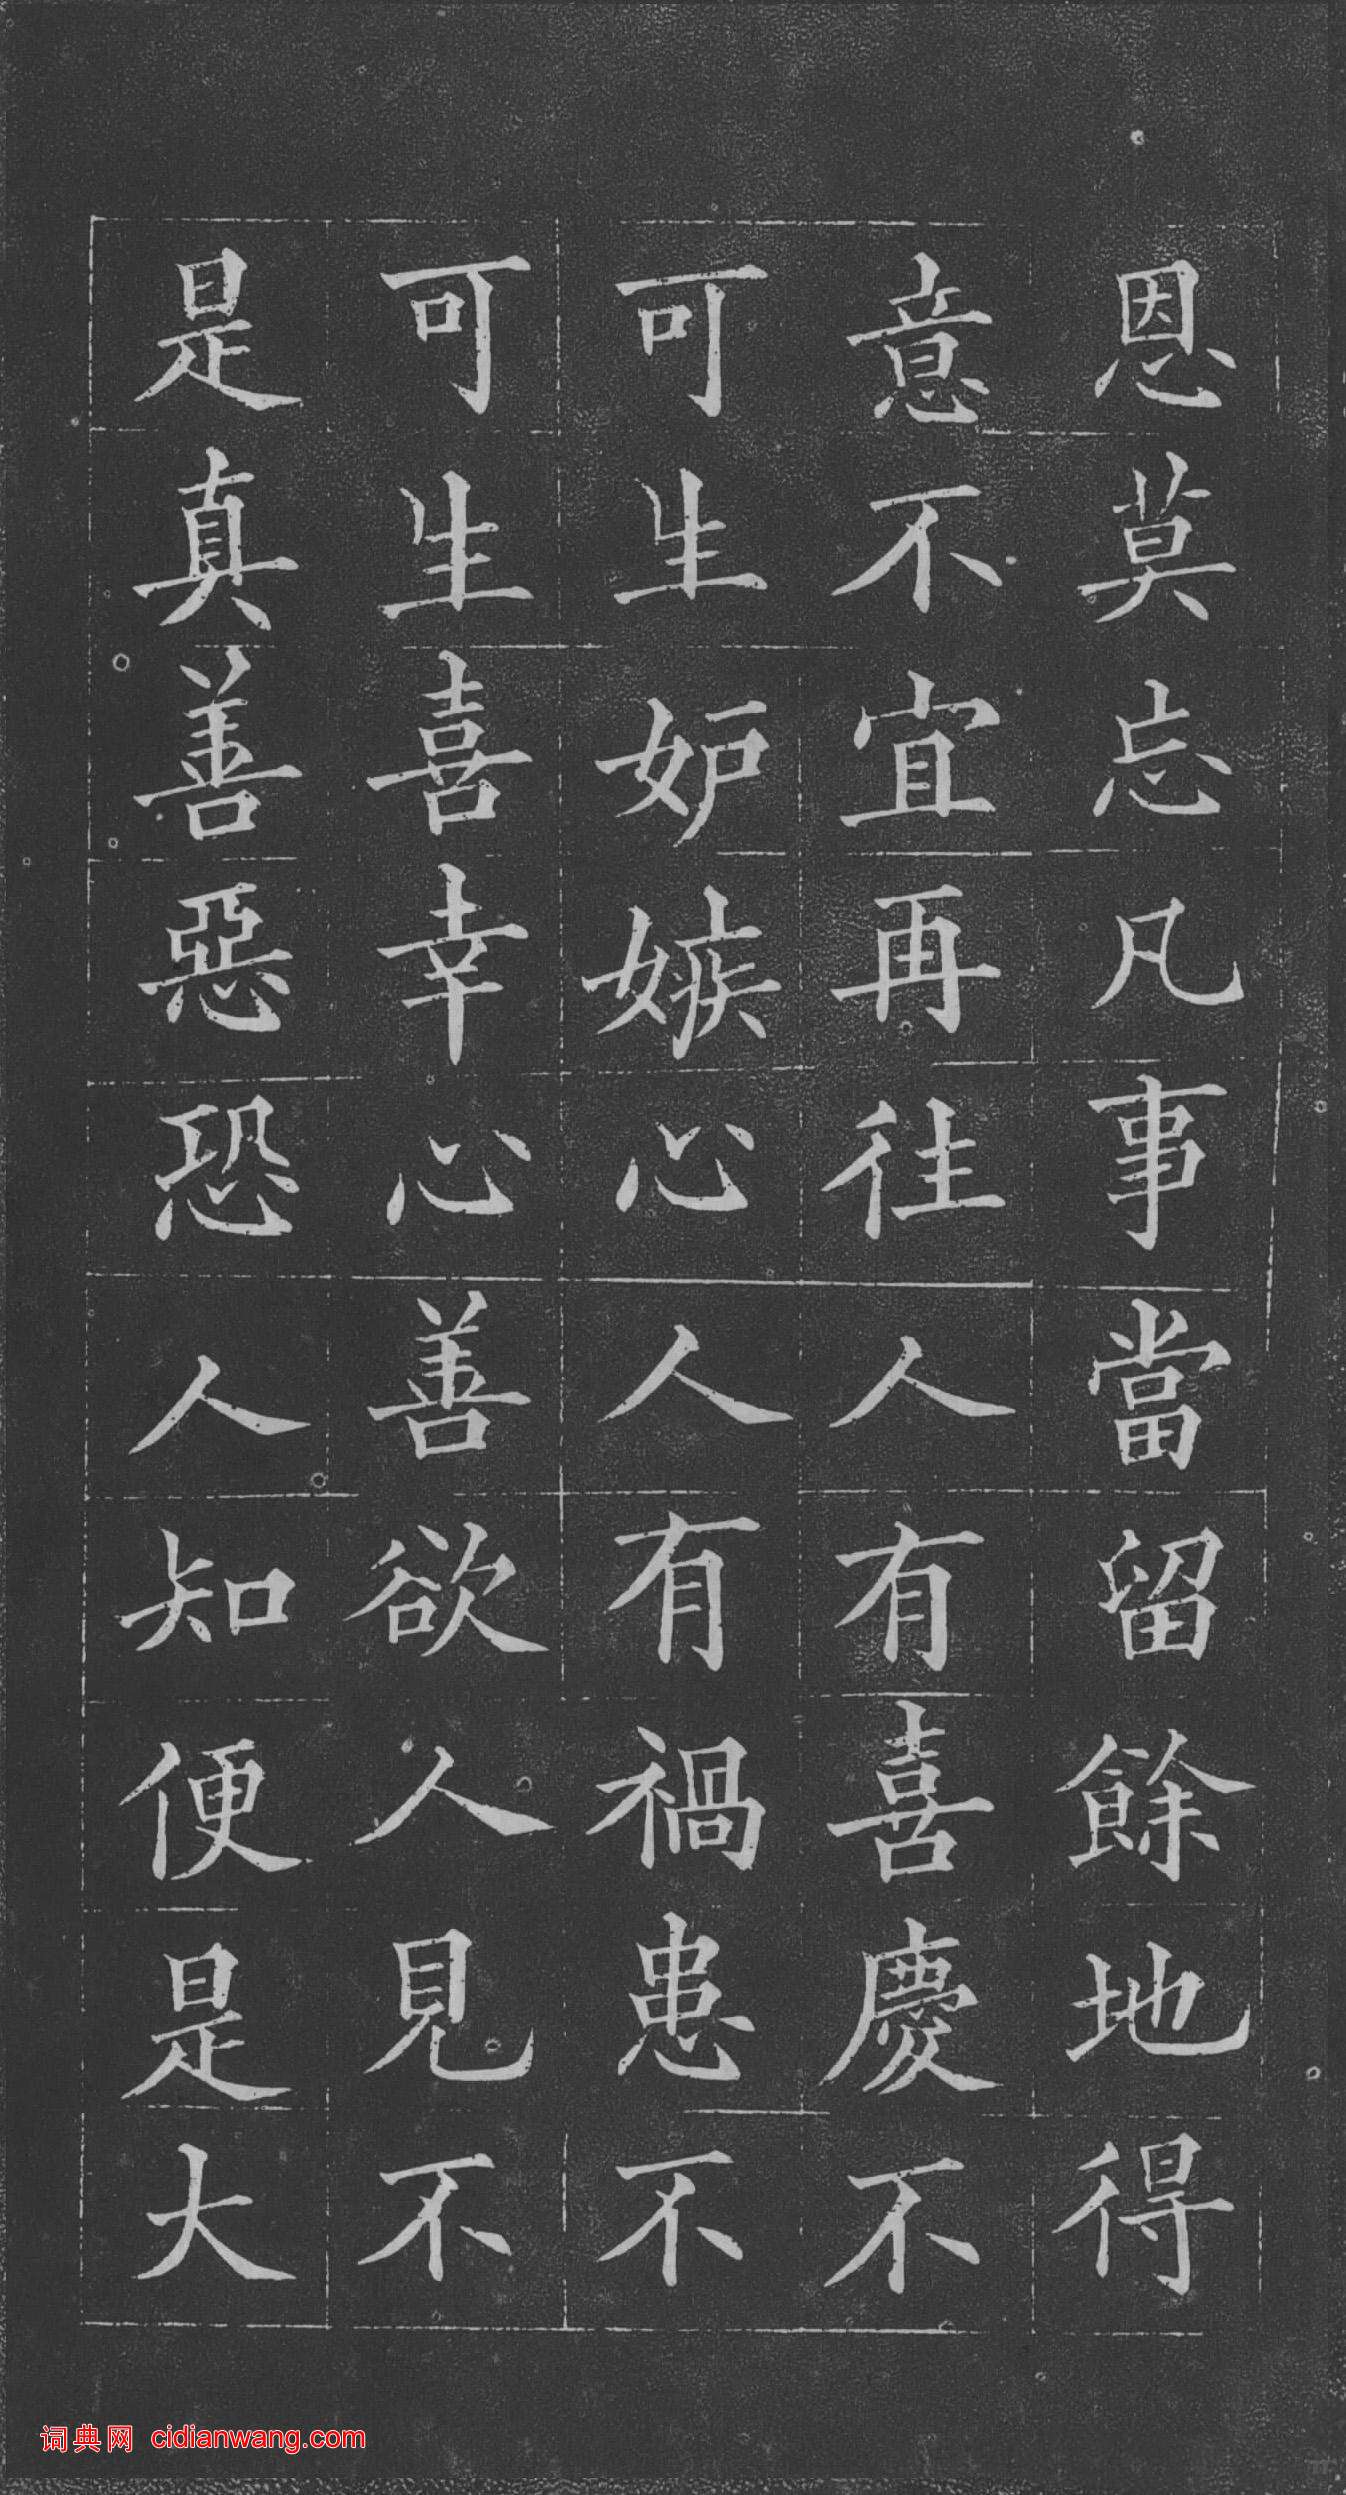 恩莫忘凡事當留餘地得
意不宜再往人有喜慶不
可生妒嫉心人有禍患不
可生喜幸心善欲人見不
是真善惡恐人知便是大
词典网 cidianwang.com